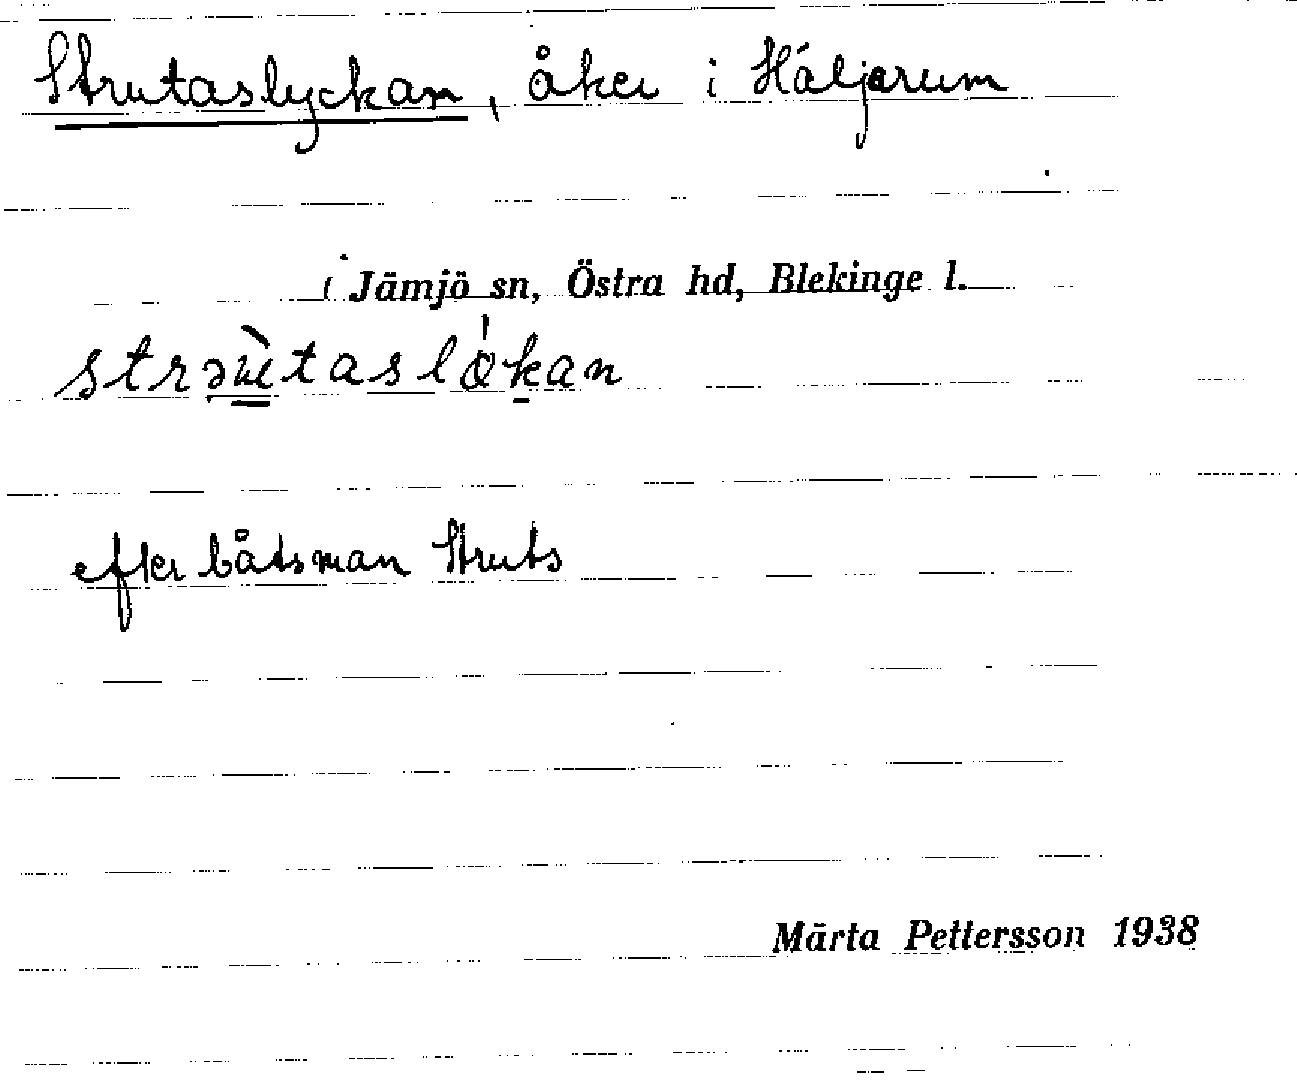 Strutaslyckan, åker i Häljarum
i Jämjö sn, Östra hd, Blekinge l.
strəɯ̀taslǿkan
efter båtsman Struts
Märta Pettersson 1938